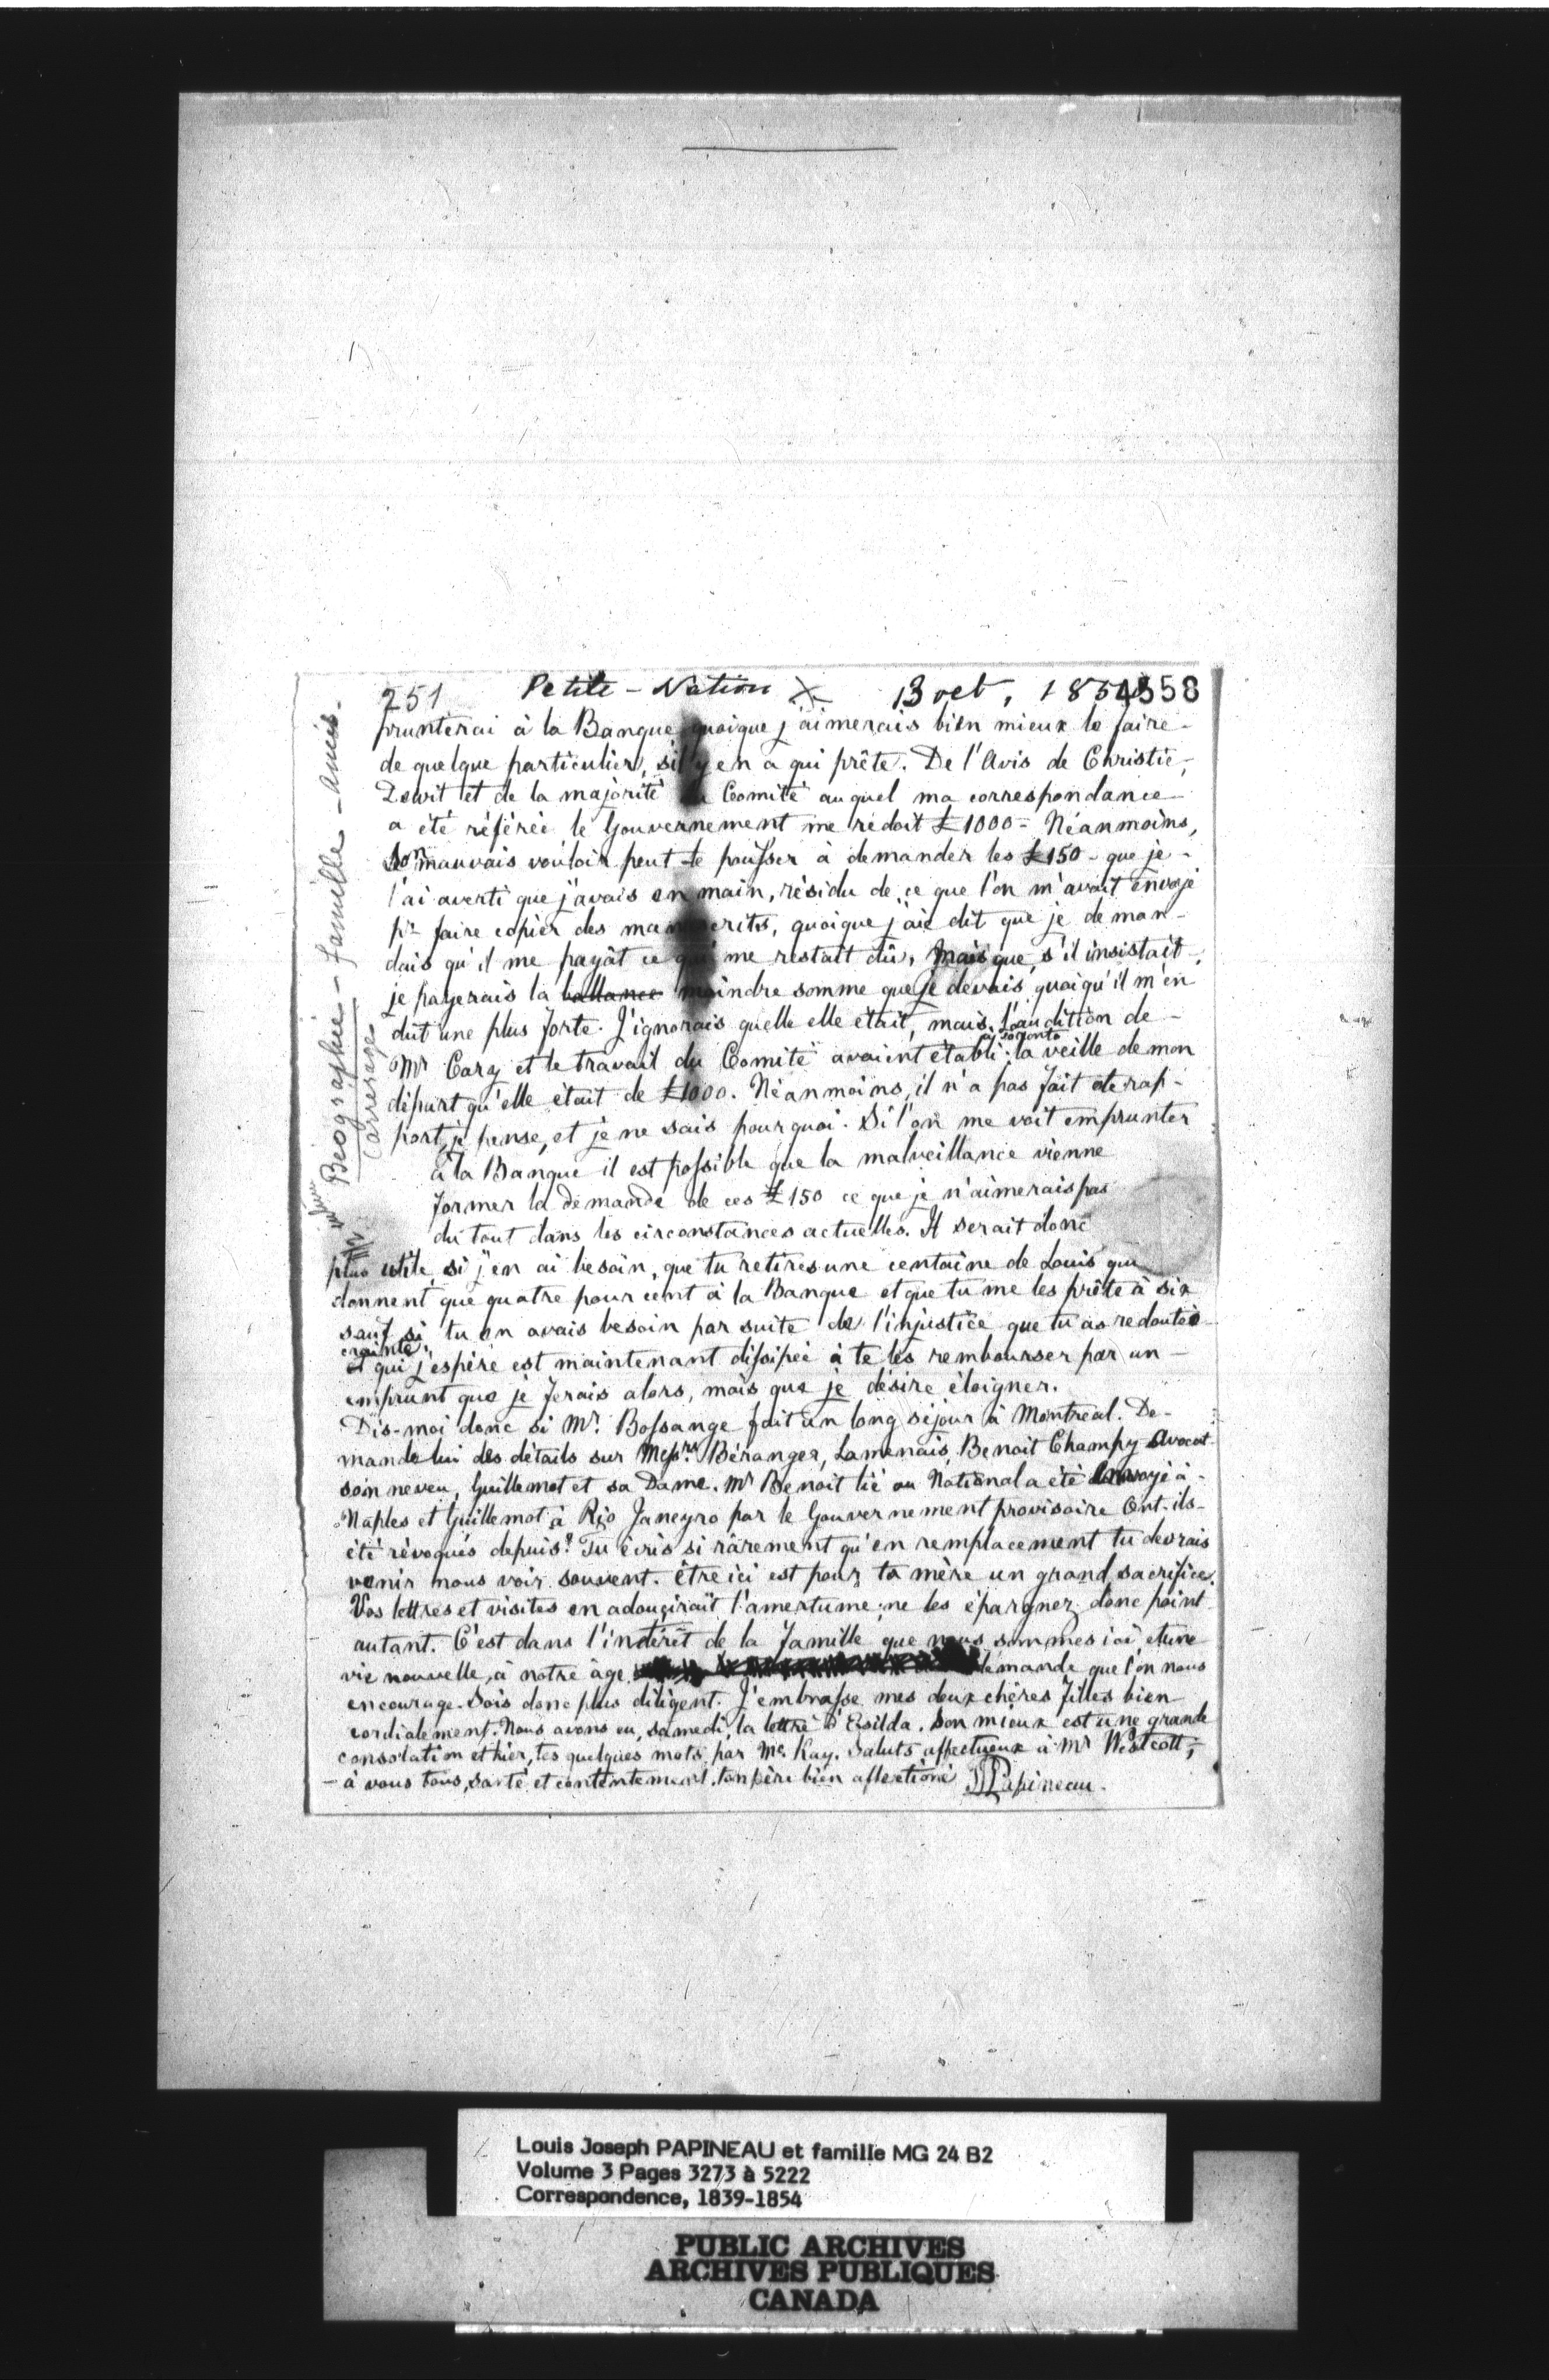 251 Petite-Nation X 13 oct, 185 4558
prunterai à la Banque, quoique j'aimerais bien mieux le faire-
de quelque particulier, s'il y en a qui prête. De l'Avis de Christie,
et de la majorité du Comité auquel ma correspondance
a été référée le Gouvernement me redoit £1000 - Néanmoins,
Son mauvais vouloir peut le pousser à demander les £150 - que je-
l'ai averti que j'avais en main, résidu de ce que l'on m'avait envoyé
pr faire copier des manuscrits, quoique j'aie dit que je deman-
dais qu'il me payât ce qui me restait dû, mais que, s'il insistait,
je payerais la ballance moindre somme que je devais quoiqu'il m'en
dût une plus forte. J'ignorais quelle elle était, mais l'audition de-
à Toronto
Mr Cary et le travail du Comité avaient établi la veille de mon
départ qu'elle était de £1000. Néanmoins, il n'a pas fait de rap-
port, je pense, et je ne sais pourquoi. Si l'on me voit emprunter
à la Banque il est possible que la malveillance vienne
former la demande de ces £150 ce que je n'aimerais pas
du tout dans les circonstances actuelles. Il serait donc
plus utile, si j'en ai besoin, que tu retires une centaine de Louis qui
donnent que quatre pour cent à la Banque et que tu me les prête à six
sauf si tu en avais besoin par suite de l'injustice que tu as redoutée
crainte
et qui j'espère est maintenant dissipée à te les rembourser par un-
emprunt que je ferais alors, mais que je désire éloigner.
Dis-moi donc si Mr. Bossange fait un long séjour à Montreal. De-
mande lui des détails sur Messrs Béranger, Lamenais, Benoit Champy Avocat
son neveu, Guillemot et sa Dame. Mr Benoit lié au National a été envoyé à-
Naples et Guillemot à Rio Janeyro par le Gouvernement provisoire Ont-ils-
été révoqués depuis? Tu écris si rarement qu'en remplacement tu devrais
venir nous voir souvent. être ici est pour ta mère un grand sacrifice.
Vos lettres et visites en adouçirait l'amertume; ne les épargnez donc point
autant. C'est dans l'intérêt de la famille que nous sommes ici et une
vie nouvelle, à notre âge demande que l'on nous
encourage. Sois donc plus diligent. J'embrasse mes deux chères filles bien
cordialement. Nous avons eu, samedi, la lettre d'Ezilda. Son mieux est une grande
consolation et hier, tes quelques mots par Mc. Kay. Saluts affectueux à Mr Westcott,
- à vous tous, santé et contentement. ton père bien affectioné LJPapineau.
Biographie - famille - Amis -
Arrérages
Louis Joseph PAPINEAU et famille MG 24 B2
Volume 3 Pages 3273 à 5222
Correspondence, 1839-1854
PUBLIC ARCHIVES
ARCHIVES PUBLIQUES
CANADA